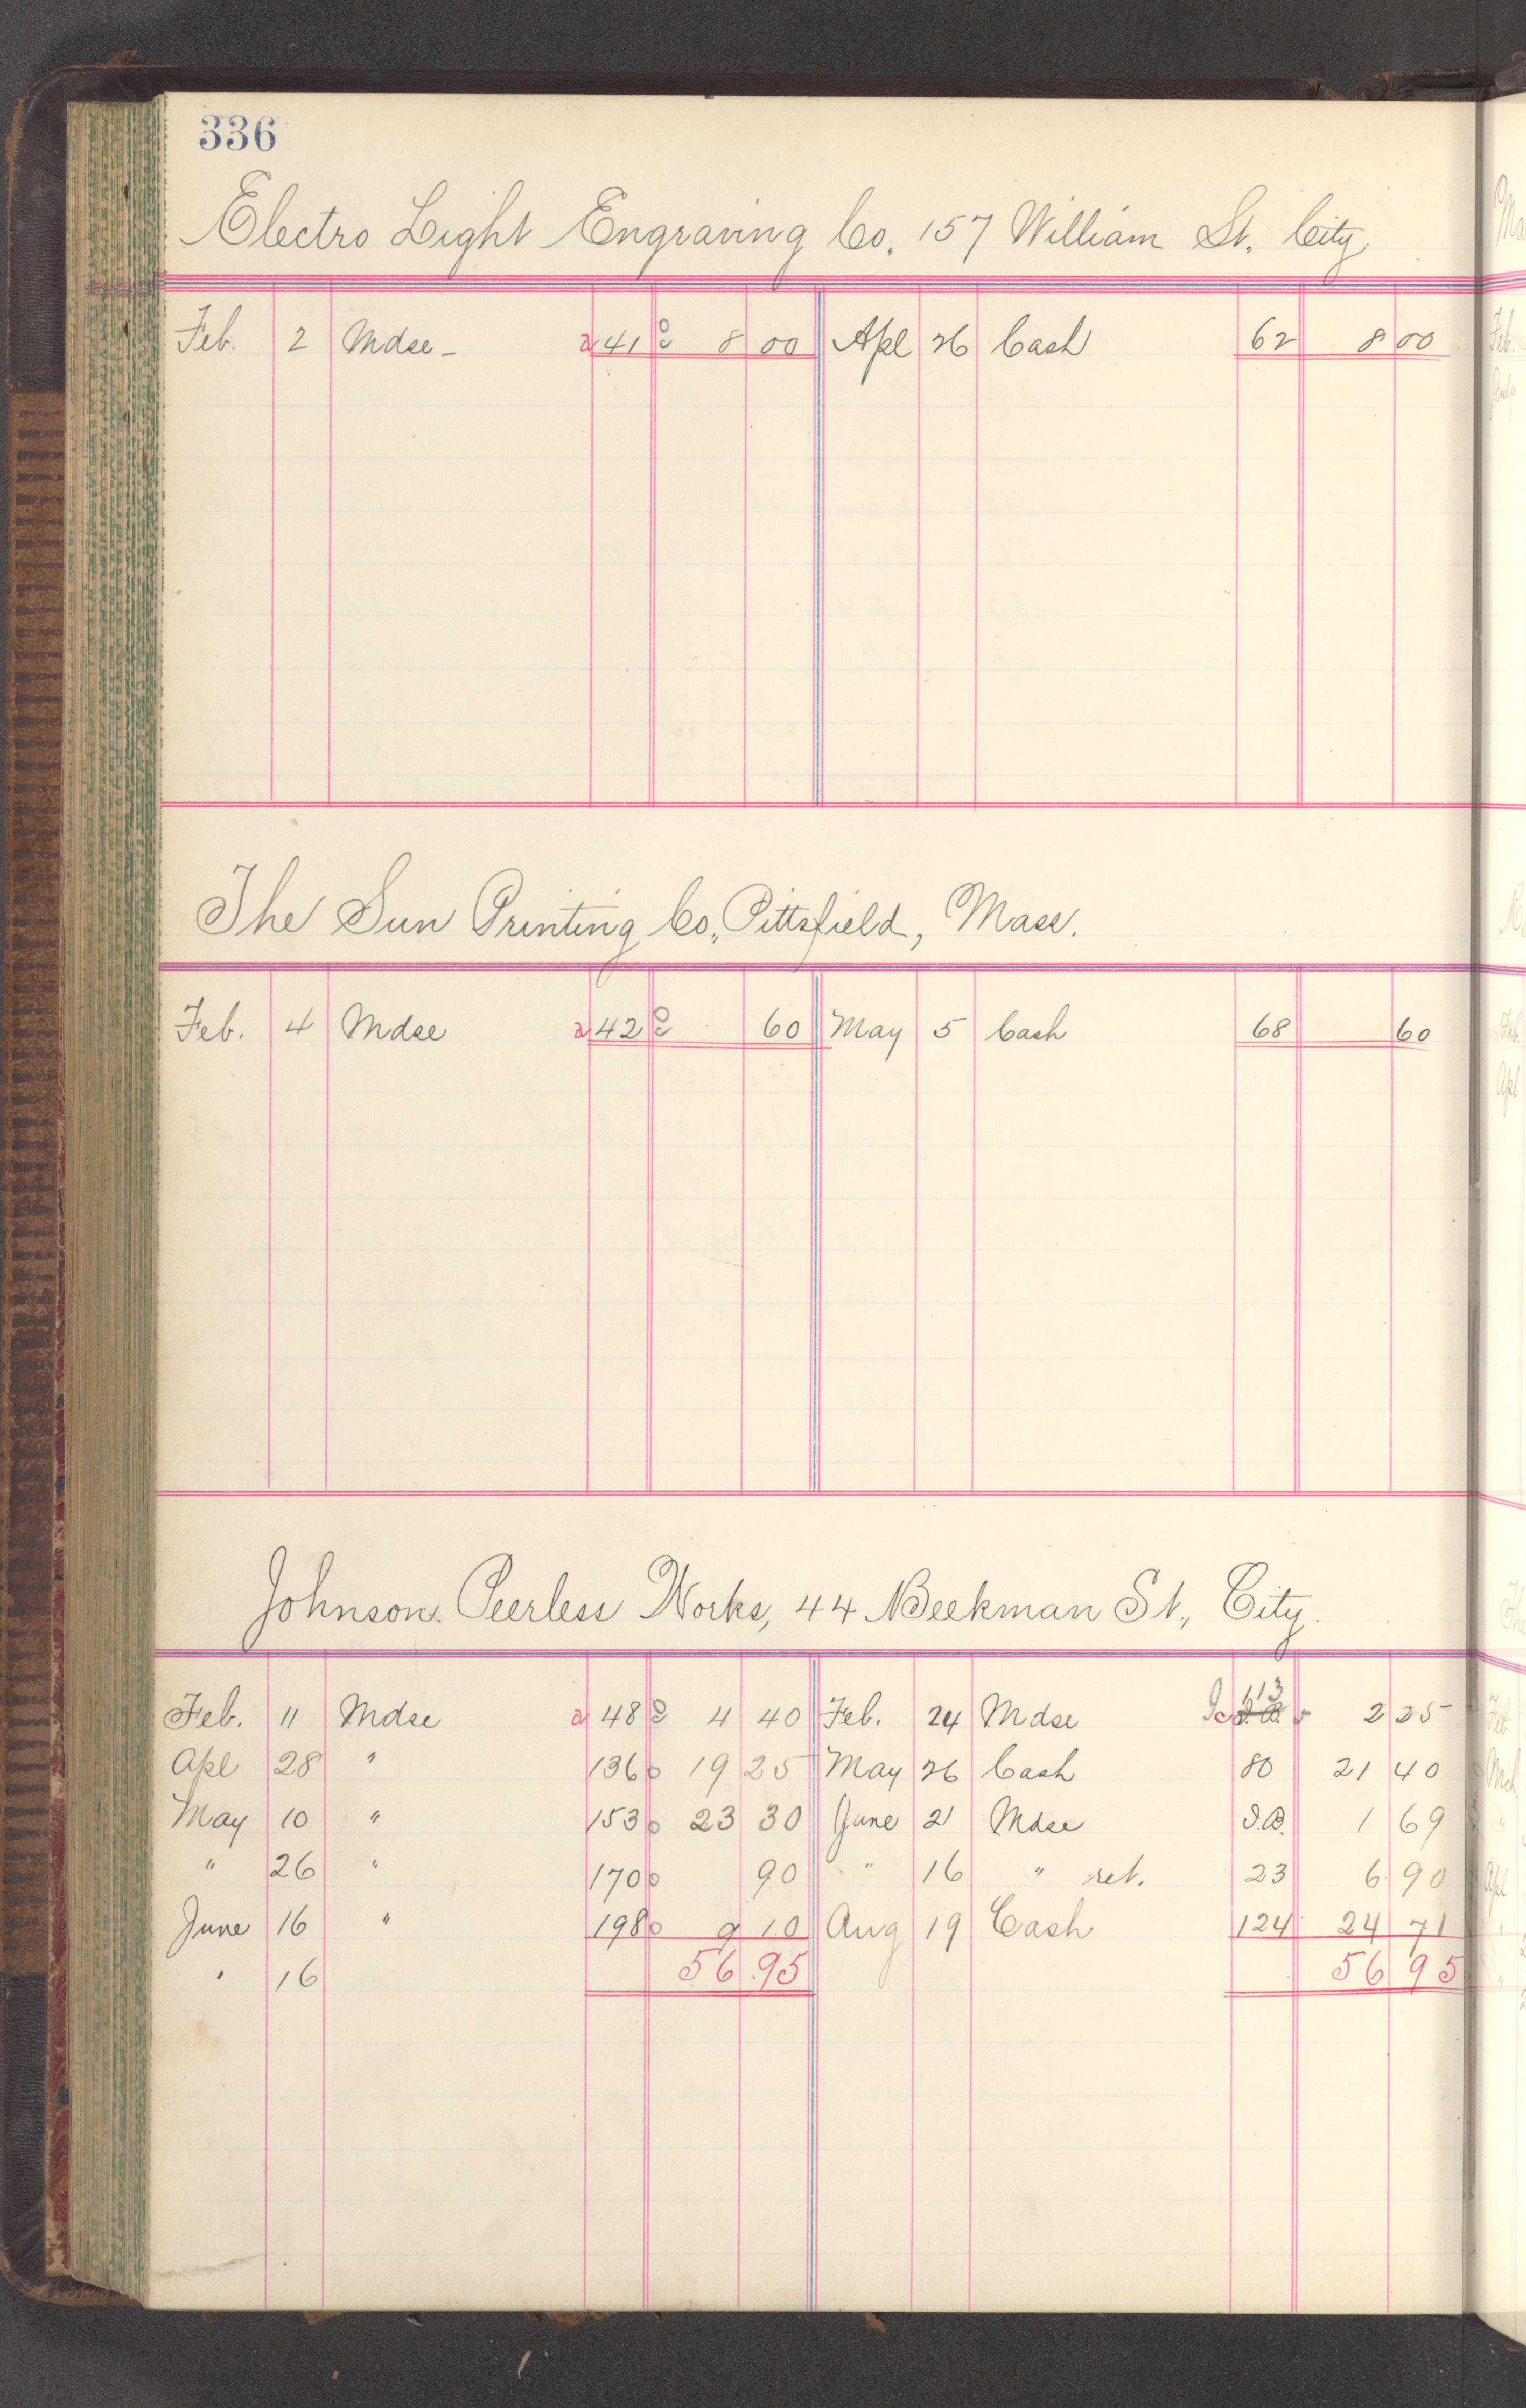 336
Electro Light Engraving Co. 157 William St. City.
Feb. 2 Mdse - a 41 8 00 Apl 26 Cash 62 8 00
The Sun Printing Co., Pittsfield, Mass.
Feb. 4 Mdse a 42 60 May 5 Cash 68 60
Johnson Peerless Works, 44 Beekman St., City.
Feb. 11 Mdse a 48 4 40 Feb. 24 Mdse 113 2 25
Apl 28 " 136 19 25 May 26 Cash 80 21 40
May 10 " 153 23 30 June 21 Mdse J.B. 1 69
" 26 " 170 90 " 16 " ret. 23 6 90
June 16 " 198 9 10 Aug 19 Cash 124 24 71
" 16 56 95 56 95